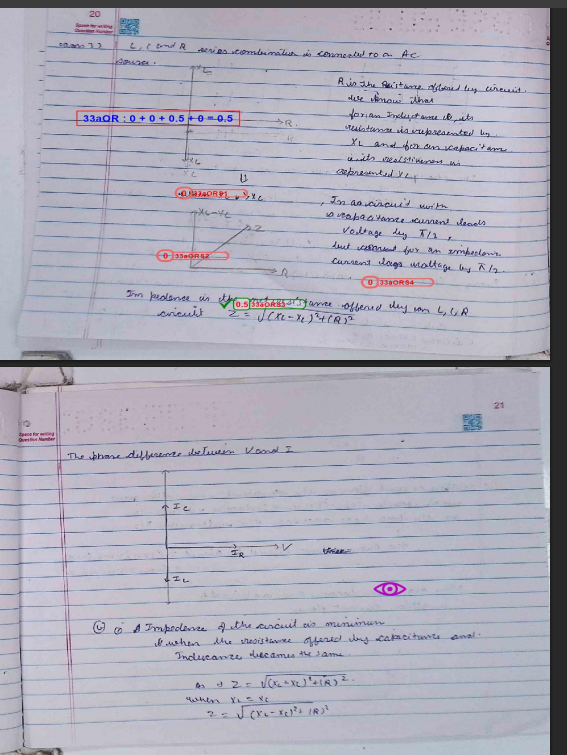 20
Space for writing
Question Number
L, C and R series combination is connected to an AC
source.
R is the resitance offered by circuit.
We know that
for an Inductance it, its
resistance is represented by
XL and for an capacitance
represented
R
33aOR : 0 + 0 + 0.5 + 0 = 0.5
0 33aORS1
XL-XC
Z
0 33aORS2
R
In a circuit with
a capacitance current leads
Voltage by π/2,
but current for an impedance
current lags voltage by π/2
0 33aORS4
Impedence is the offered by an L, C, R
0.5 33aORS3
circuit Z = √(XL-XC)²+(R)²
21
Space for writing
Question Number
The phase difference between V and I
IC
IR
V
IL
(i) Impedence of the circuit is minimum
when the resistance offered by capacitance and
Inductance becomes the same
As Z = √(XL-XC)²+(R)²
when XL = XC
Z = √(XL-XC)²+(R)²